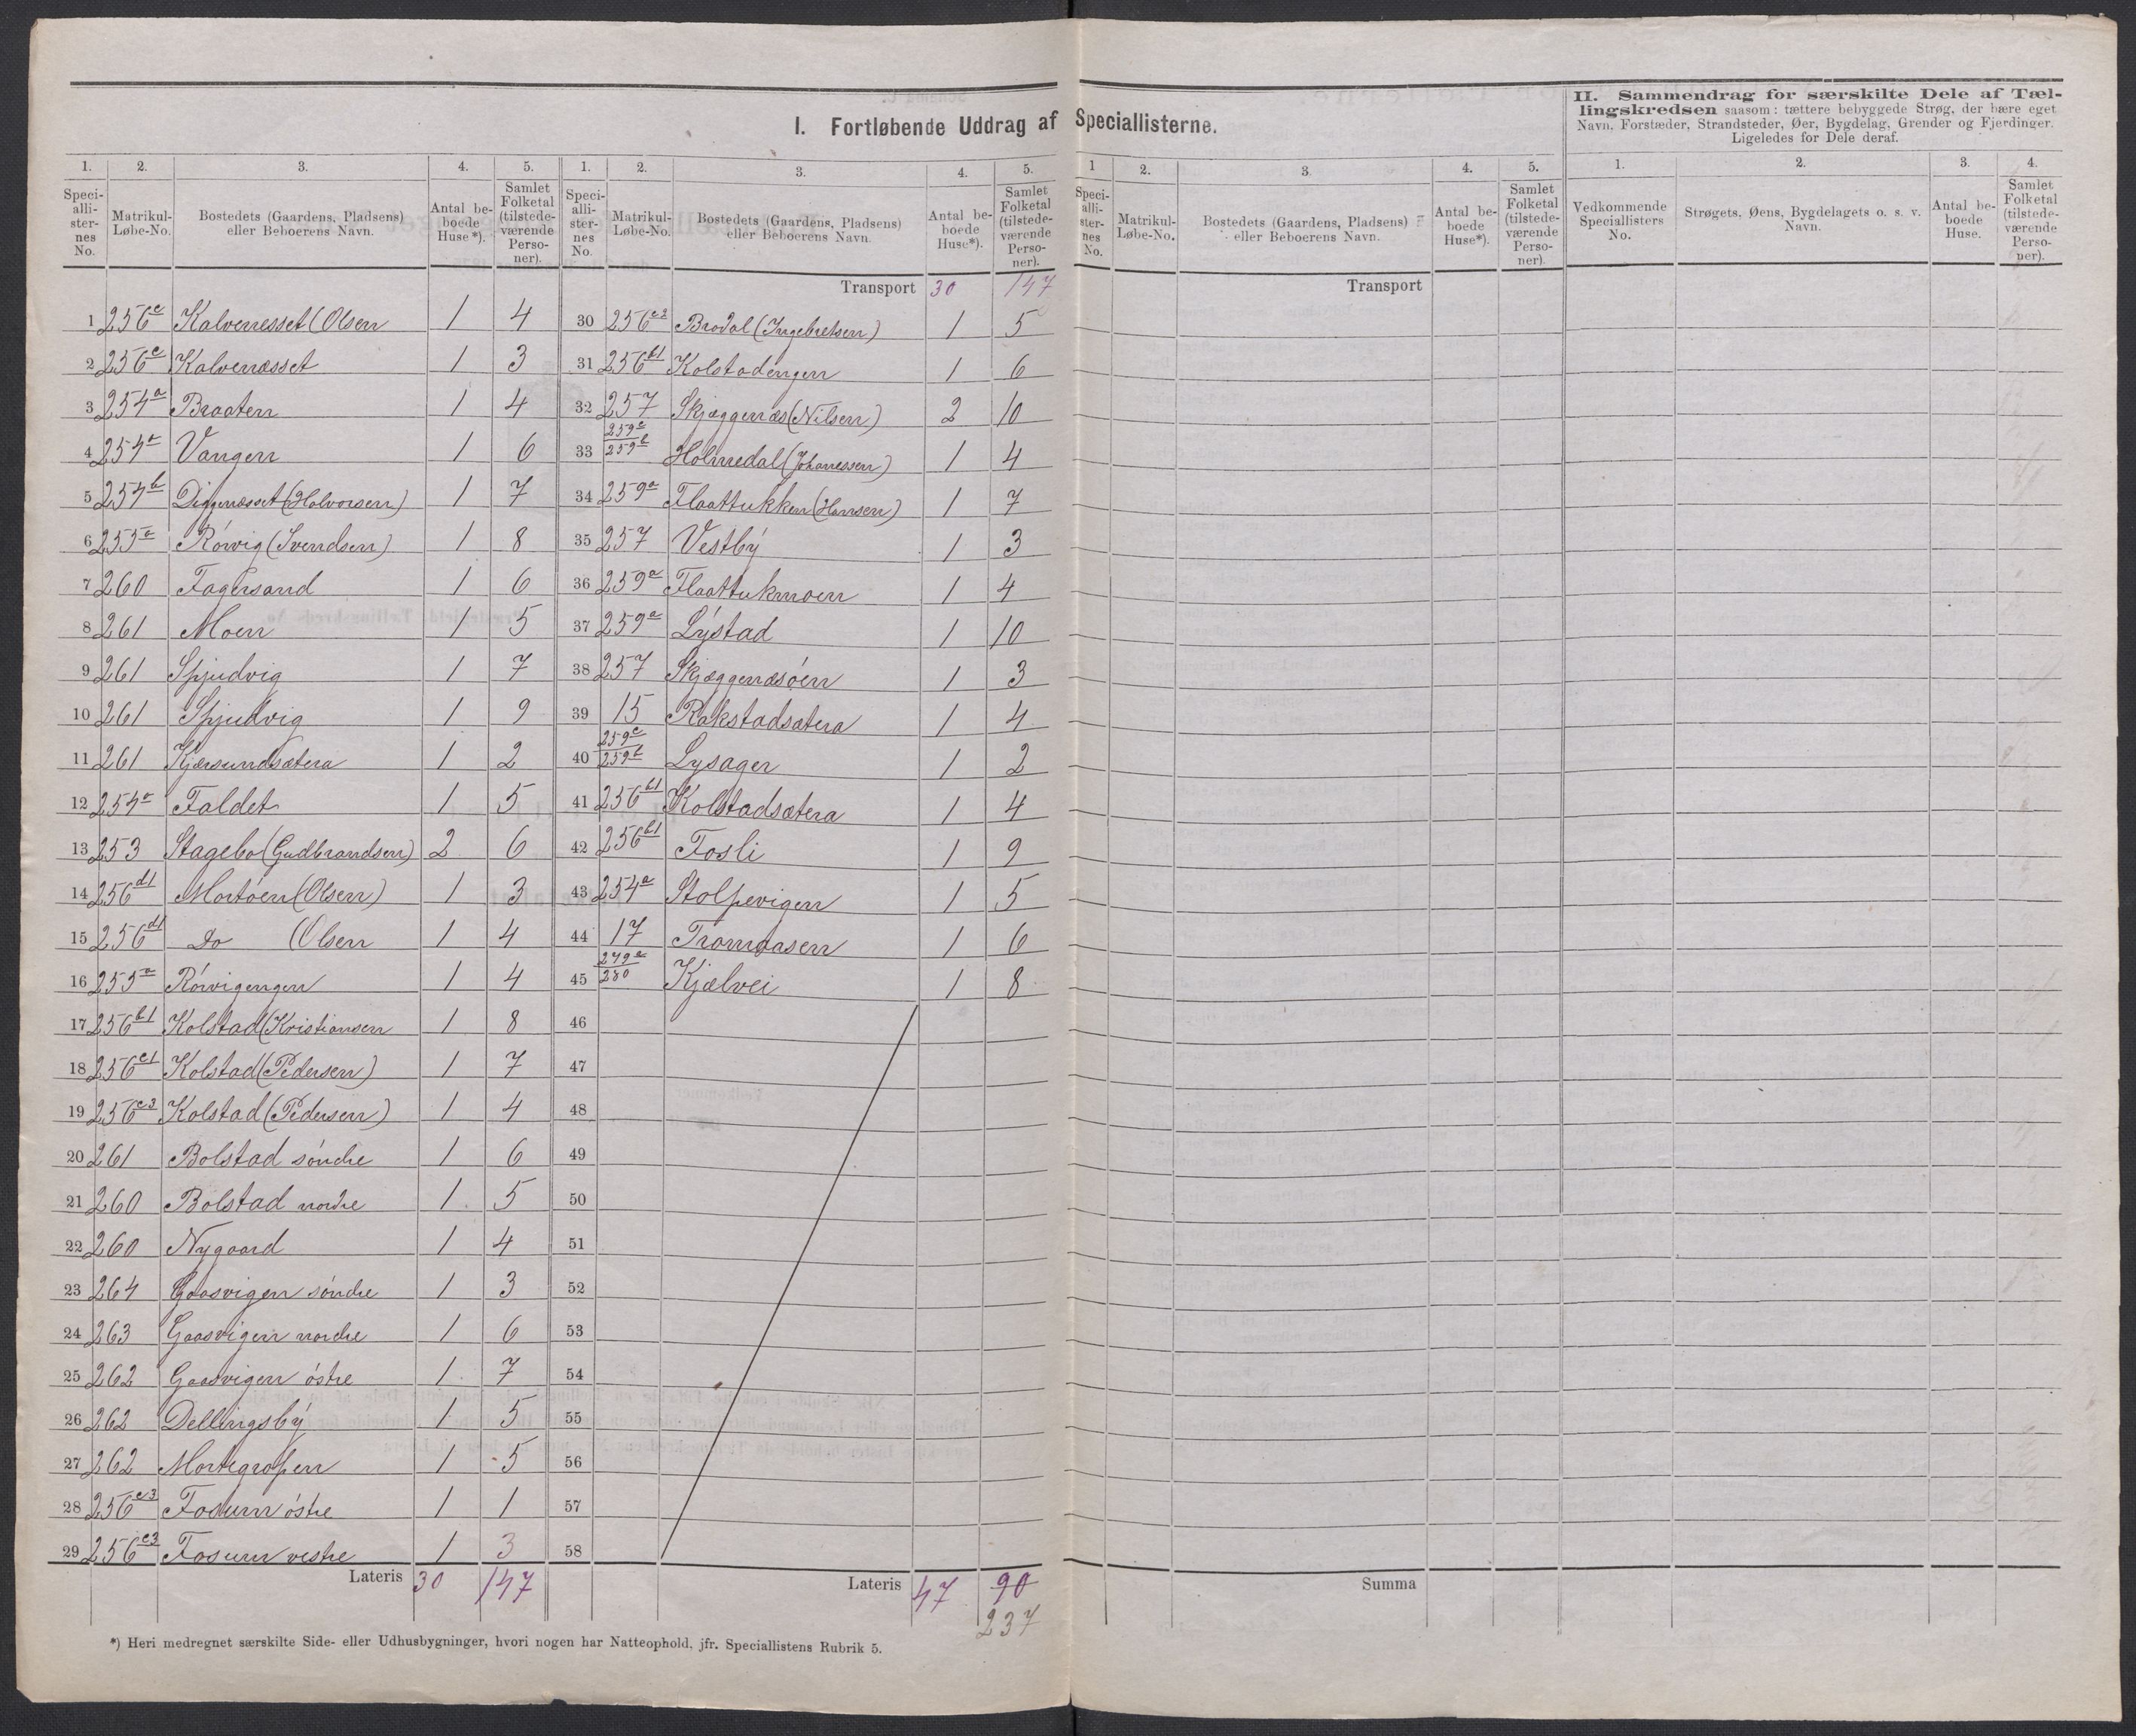 I. Fortløbende Uddrag af Speciallisterne.
II. Sammendrag for særskilte Dele af Tæl-
lingskredsen saasom: tættere bebyggede Strøg, der bære eget
Navn, Forstæder, Strandsteder, Øer, Bygdelag, Grender og Fjerdinger.
Ligeledes for Dele deraf.
1. 2. 3. 4. 5.
Speci-alli-ster-nes No. Matrikul-Løbe-No. Bostedets (Gaardens, Pladsens) eller Beboerens Navn. Antal be-boede Huse*). Samlet Folketal (tilstede-værende Perso-ner).
1 256c Kalvenesset (Olsen 1 4
2 256c Kalvenæsset 1 3
3 254a Braaten 1 4
4 254a Vangen 1 6
5 254b Diggenæsset (Halvorsen) 1 7
6 255a Rövig (Svendsen) 1 8
7 260 Fagersand 1 6
8 261 Moen 1 5
9 261 Spjudvig 1 7
10 261 Spjudvig 1 9
11 261 Kjærsundsætera 1 2
12 254a Faldet 1 5
13 253 Stagebo (Gudbrandsen) 2 6
14 256d1 Mortöen (Olsen) 1 3
15 256d1 Do (Olsen 1 4
16 255a Rövigengen 1 4
17 256b1 Kolstad (Kristiansen 1 8
18 256c1 Kolstad (Pedersen) 1 7
19 256c3 Kolstad (Pedersen) 1 4
20 261 Bolstad söndre 1 6
21 260 Bolstad nordre 1 5
22 260 Nygaard 1 4
23 264 Gaasvigen söndre 1 3
24 263 Gaasvigen nordre 1 6
25 262 Gaasvigen östre 1 7
26 262 Dellingsbÿ 1 5
27 262 Mortegrofen 1 5
28 256c3 Fosum östre 1 1
29 256c3 Fosum vestre 1 3
Lateris 30 147
1. 2. 3. 4. 5.
Speci-alli-ster-nes No. Matrikul-Løbe-No. Bostedets (Gaardens, Pladsens) eller Beboerens Navn. Antal be-boede Huse*). Samlet Folketal (tilstede-værende Perso-ner).
Transport 30 147
30 256c2 Brodal (Ingebretsen) 1 5
31 256b1 Kolstadengen 1 6
32 257 Skjæggenæs (Nilsen) 2 10
33 259c 259b Holmedal (Johanessen) 1 4
34 259a Flaattukken (Hansen) 1 7
35 257 Vestbÿ 1 3
36 259a Flaattukmoen 1 4
37 259a Lÿstad 1 10
38 257 Skjæggenæsöen 1 3
39 15 Rakstadsætera 1 4
40 259c 259b Lysager 1 2
41 256b1 Kolstadsætera 1 4
42 256b1 Fosli 1 9
43 254a Stolpevigen 1 5
44 17 Tromaasen 1 6
45 279a 280 Kjælvei 1 8
46
47
48
49
50
51
52
53
54
55
56
57
58
Lateris 47 90
237
1 2. 3. 4. 5.
Speci-alli-ster-nes No. Matrikul-Løbe-No. Bostedets (Gaardens, Pladsens) eller Beboerens Navn. Antal be-boede Huse*). Samlet Folketal (tilstede-værende Perso-ner).
Transport
Summa
1. 2. 3. 4.
Vedkommende Speciallisters No. Strøgets, Øens, Bygdelagets o. s. v. Navn. Antal be-boede Huse. Samlet Folketal (tilstede-værende Perso-ner).
*) Heri medregnet særskilte Side- eller Udhusbygninger, hvori nogen har Natteophold, jfr. Speciallistens Rubrik 5.